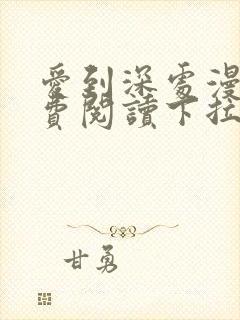 愛到深處漫
費閱讀下拉
甘勇